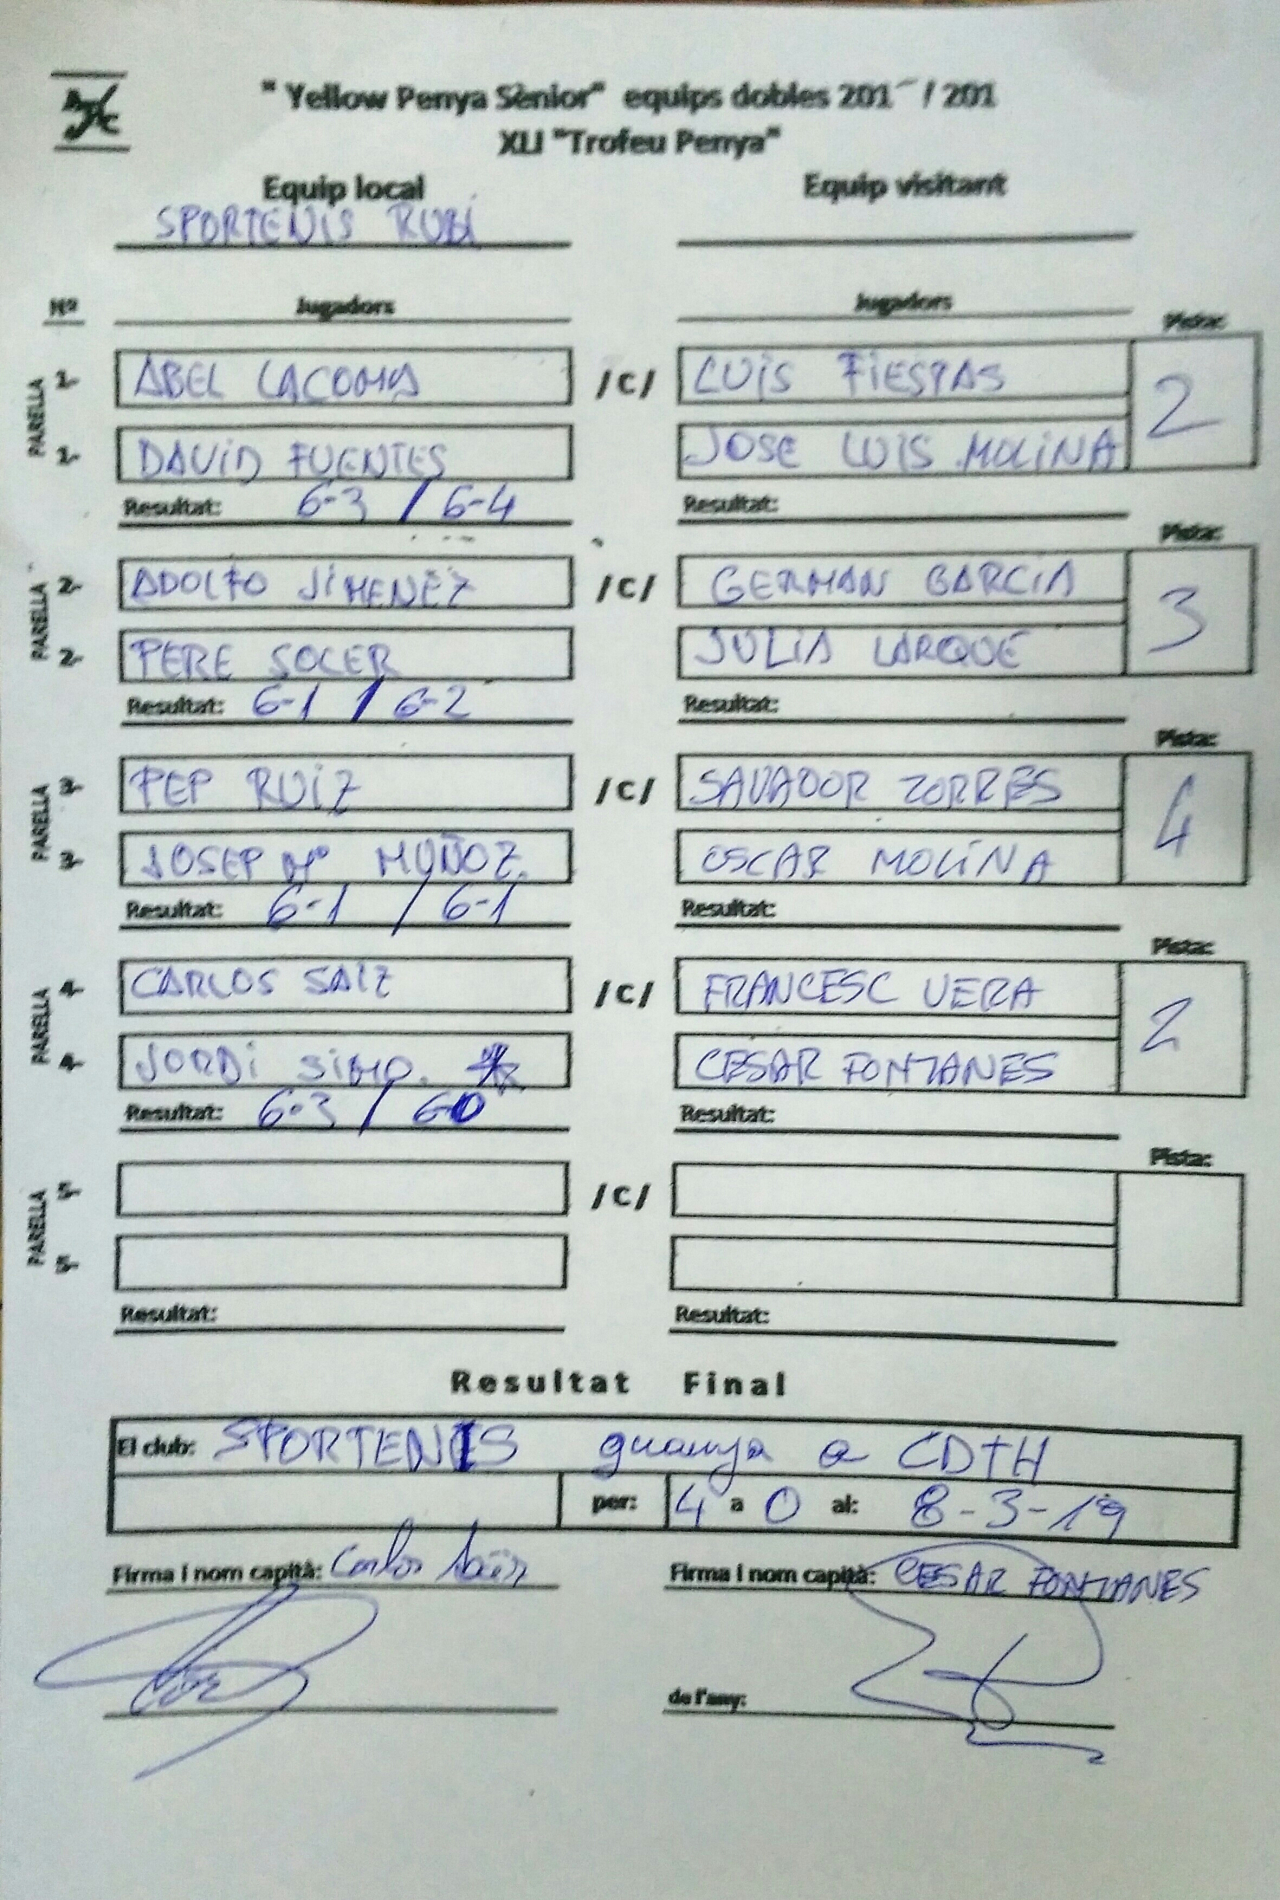 " Yellow Penya Sènior" equips dobles 201 / 201
XLI "Trofeu Penya"
Equip local
Equip visitant
SPORTENIS RUBÍ
Nº
Jugadors
Jugadors
Pista:
PARELLA
1-
ABEL LACOMA
/C/
LUIS FIESTAS
2
1-
DAVID FUENTES
JOSE LUIS MOLINA
Resultat: 6-3 / 6-4
Resultat:
Pista:
PARELLA
2-
ADOLFO JIMENEZ
/C/
GERMAN GARCIA
3
2-
PERE SOLER
JULIA LARQUE
Resultat: 6-1 / 6-2
Resultat:
Pista:
PARELLA
3-
PEP RUIZ
/C/
SAVADOR TORRES
4
3-
JOSEP Mº MUÑOZ.
OSCAR MOLINA
Resultat: 6-1 / 6-1
Resultat:
Pista:
PARELLA
4-
CARLOS SAIZ
/C/
FRANCESC VERA
2
4-
JORDI SIMO. *
CESAR FONTANES
Resultat: 6-3 / 6-0
Resultat:
Pista:
PARELLA
5-
/C/
5-
Resultat:
Resultat:
Resultat Final
El club: SPORTENIS guanya a CDTH
per: 4 a 0 al: 8-3-19
Firma i nom capità: Carlos Saiz
Firma i nom capità: CESAR FONTANES
de l'any: